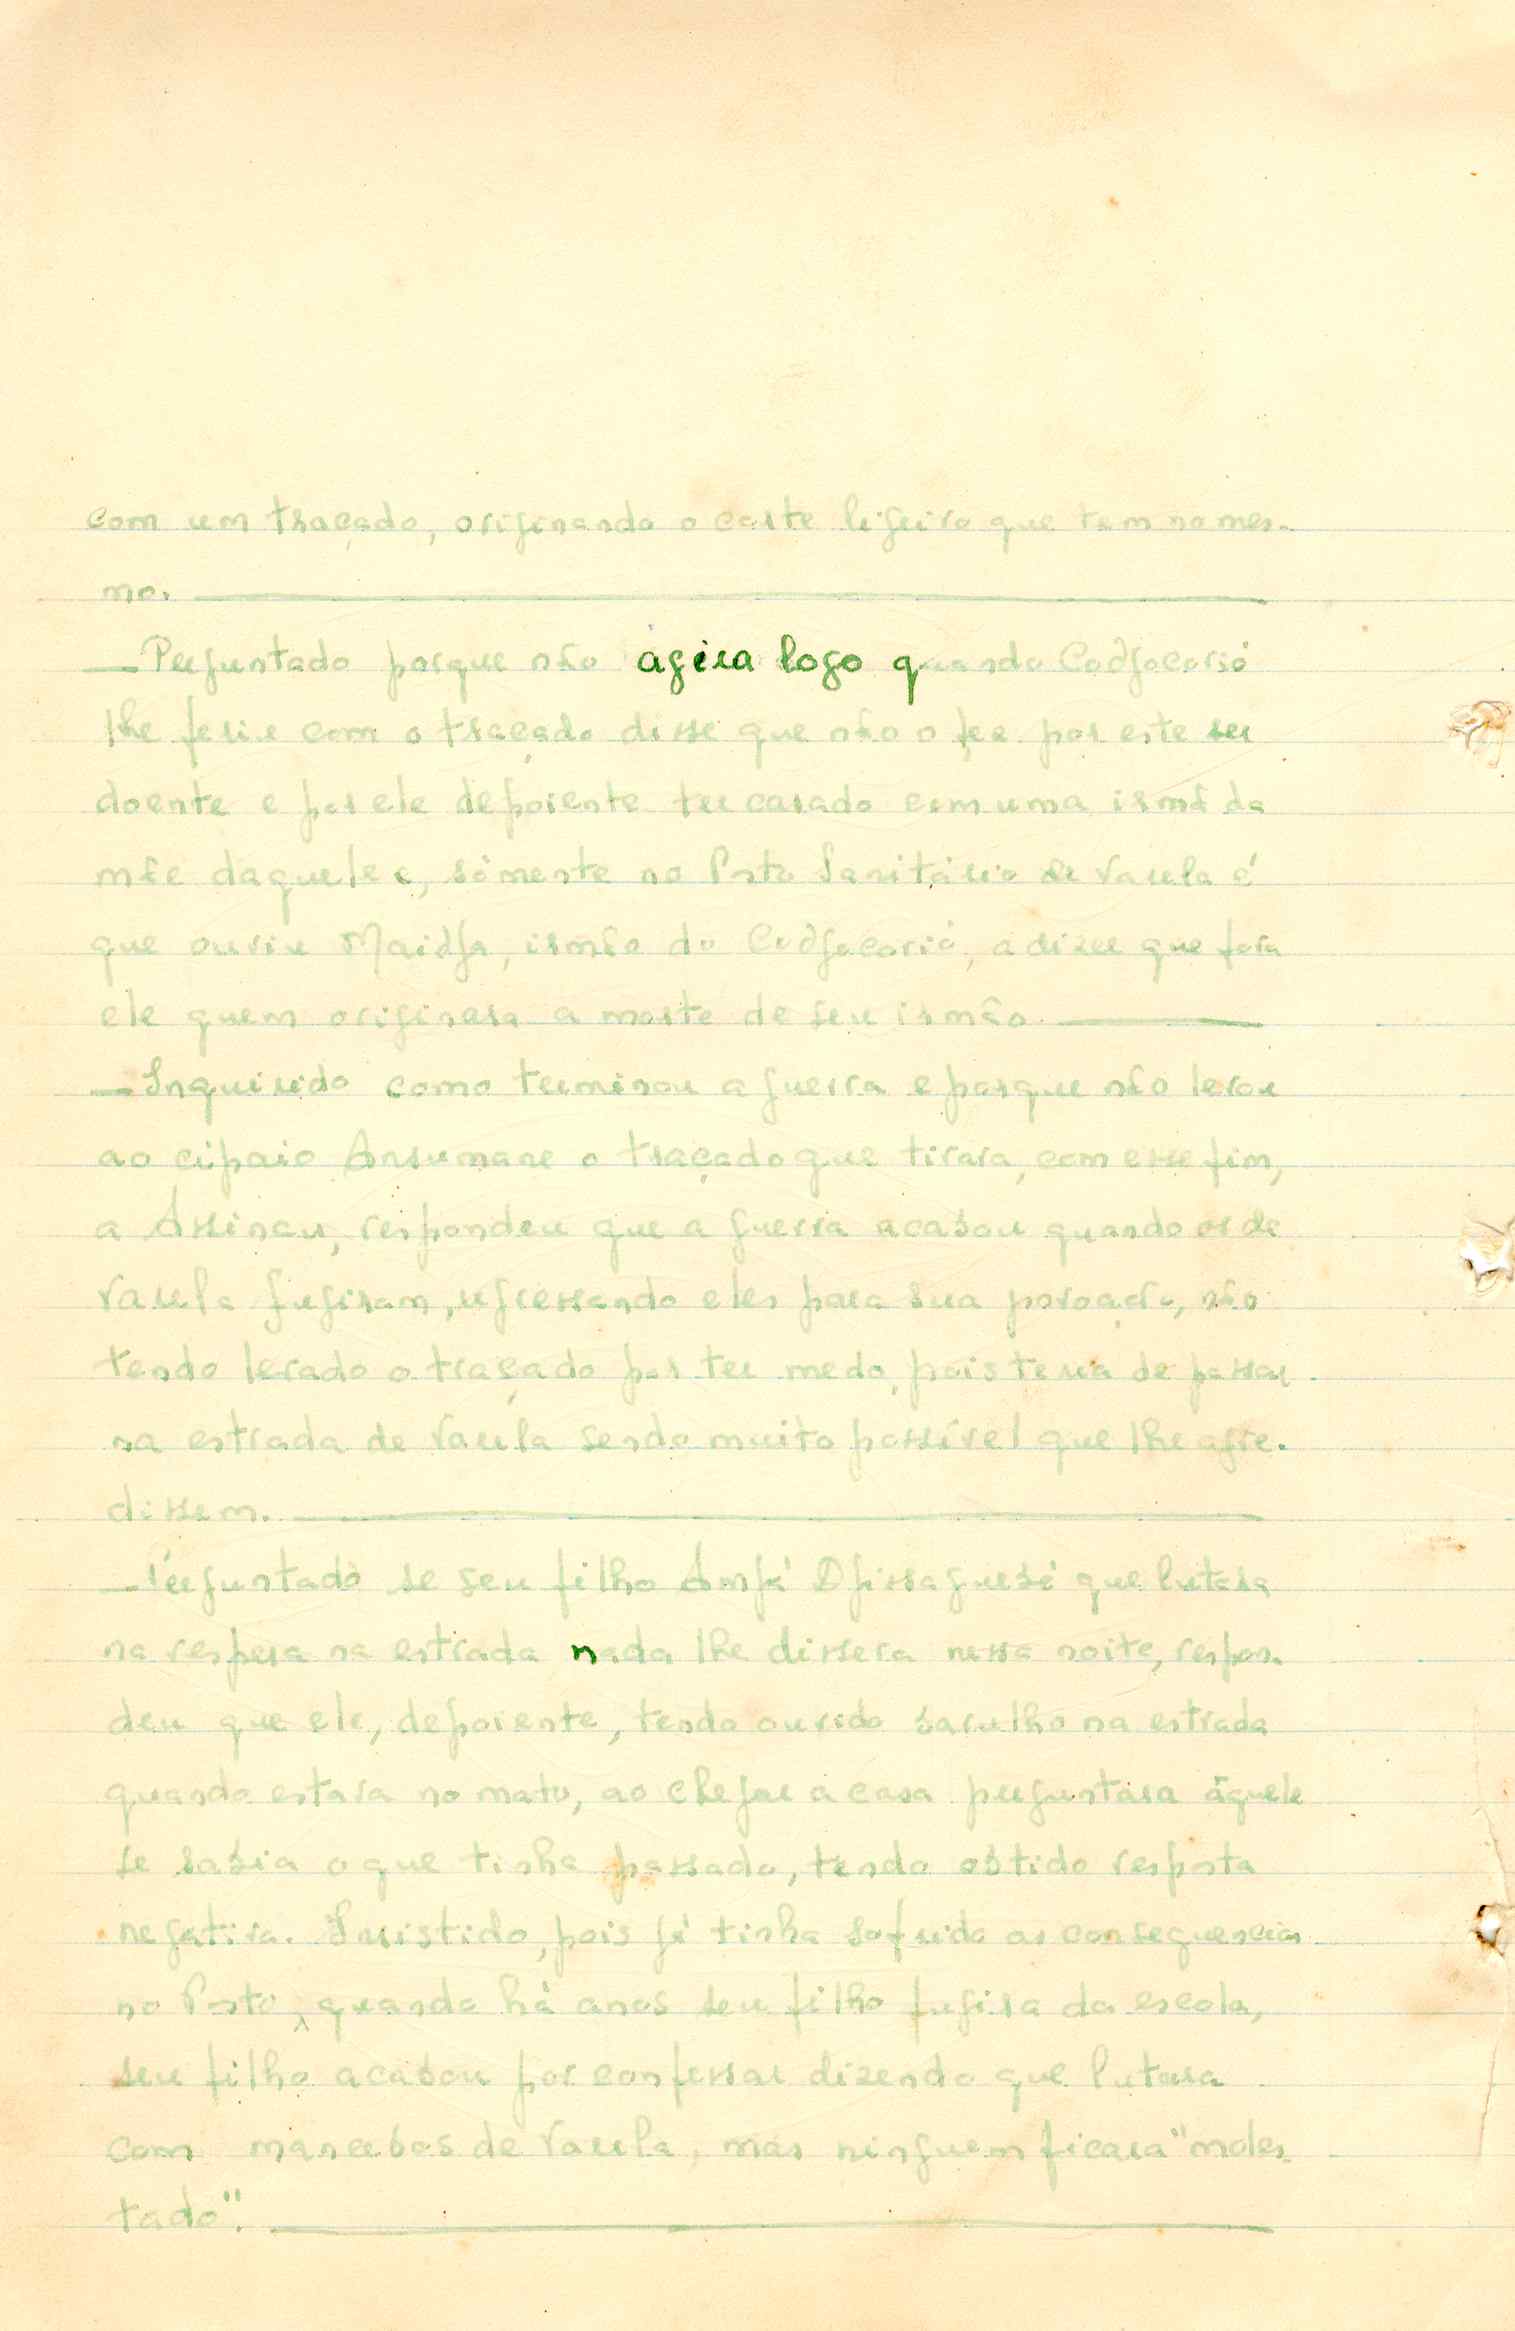 com um traçado, originando o corte ligeiro que tem no mes-
mo.
— Perguntado porque não agira logo quando Codjocorió
lhe feriu com o traçado disse que não o fez por este ser
doente e por ele depoiente ter casado com uma irmã da
mãe daquele e, sòmente no Posto Sanitário de Varela é
que ouviu Maidja, irmão do Codjocorió, a dizer que fora
ele quem originara a morte de seu irmão
— Inquirido como terminou a guerra e porque não levou
ao cipaio Ansumane o traçado que tirara, com esse fim,
a Assineu, respondeu que a guerra acabou quando os de
Varela fugiram, regressando eles para sua povoação, não
tendo levado o traçado por ter medo, pois teria de passar
na estrada de Varela sendo muito possível que lhe agre-
dissem.
— Perguntado se seu filho Ampá Djissaguebé que lutara
na vespera na estrada nada lhe dissera nessa noite, respon-
deu que ele, depoiente, tendo ouvido barulho na estrada
quando estava no mato, ao chegar a casa perguntara àquele
se sabia o que tinha passado, tendo obtido resposta
negativa. Insistido, pois já tinha sofrido as consequencias
no Posto, quando há anos seu filho fugira da escola,
seu filho acabou por confessar dizendo que lutara
com mancebos de Varela, mas ninguem ficara "moles-
tado".